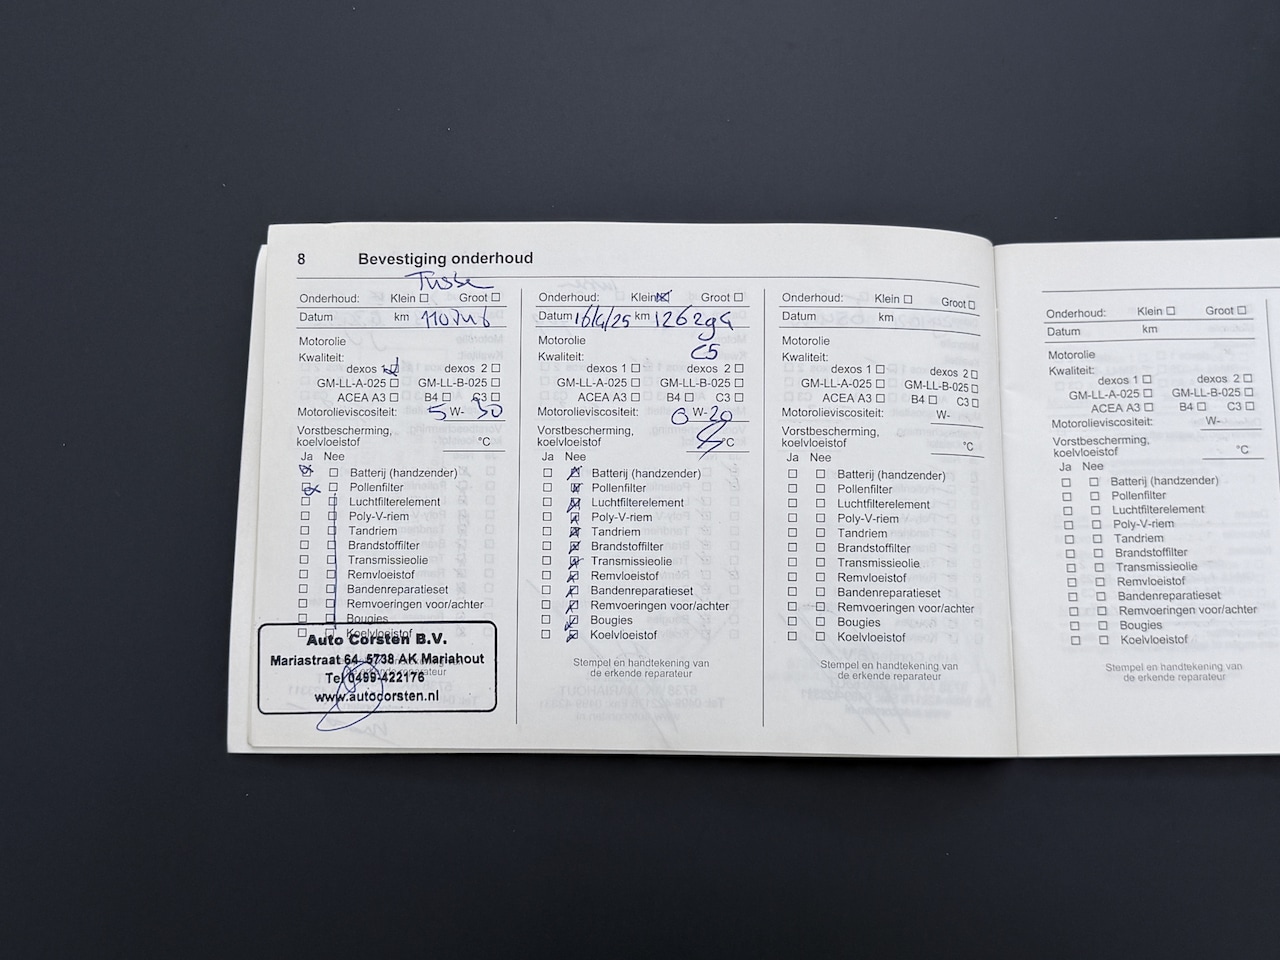 8 Bevestiging onderhoud
Tusse
Onderhoud: Klein Groot
Datum km
Motorolie
Kwaliteit:
dexos 1 dexos 2
GM-LL-A-025 GM-LL-B-025
ACEA A3 B4 C3
Motorolieviscositeit: 5 W- 30
Vorstbescherming,
koelvloeistof °C
Ja Nee
Batterij (handzender)
Pollenfilter
Luchtfilterelement
Poly-V-riem
Tandriem
Brandstoffilter
Transmissieolie
Remvloeistof
Bandenreparatieset
Remvoeringen voor/achter
Bougies
Koelvloeistof
Auto Corsten B.V.
Mariastraat 64 5738 AK Mariahout
Tel 0499-422176
www.autocorsten.nl
Onderhoud: Klein Groot
Datum 16/4/25 km 126294
Motorolie C5
Kwaliteit:
dexos 1 dexos 2
GM-LL-A-025 GM-LL-B-025
ACEA A3 B4 C3
Motorolieviscositeit: 0 W- 20
Vorstbescherming,
koelvloeistof °C
Ja Nee
Batterij (handzender)
Pollenfilter
Luchtfilterelement
Poly-V-riem
Tandriem
Brandstoffilter
Transmissieolie
Remvloeistof
Bandenreparatieset
Remvoeringen voor/achter
Bougies
Koelvloeistof
Stempel en handtekening van
de erkende reparateur
Onderhoud: Klein Groot
Datum km
Motorolie
Kwaliteit:
dexos 1 dexos 2
GM-LL-A-025 GM-LL-B-025
ACEA A3 B4 C3
Motorolieviscositeit: W-
Vorstbescherming,
koelvloeistof °C
Ja Nee
Batterij (handzender)
Pollenfilter
Luchtfilterelement
Poly-V-riem
Tandriem
Brandstoffilter
Transmissieolie
Remvloeistof
Bandenreparatieset
Remvoeringen voor/achter
Bougies
Koelvloeistof
Stempel en handtekening van
de erkende reparateur
Onderhoud: Klein Groot
Datum km
Motorolie
Kwaliteit:
dexos 1 dexos 2
GM-LL-A-025 GM-LL-B-025
ACEA A3 B4 C3
Motorolieviscositeit: W-
Vorstbescherming,
koelvloeistof °C
Ja Nee
Batterij (handzender)
Pollenfilter
Luchtfilterelement
Poly-V-riem
Tandriem
Brandstoffilter
Transmissieolie
Remvloeistof
Bandenreparatieset
Remvoeringen voor/achter
Bougies
Koelvloeistof
Stempel en handtekening van
de erkende reparateur